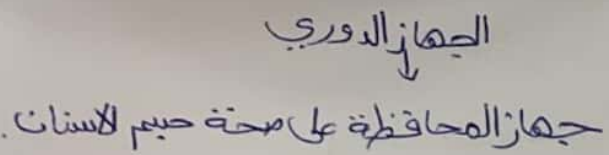 الجهاز الدوري
↓
جهاز المحافظة على صحة جسم لاسنان.